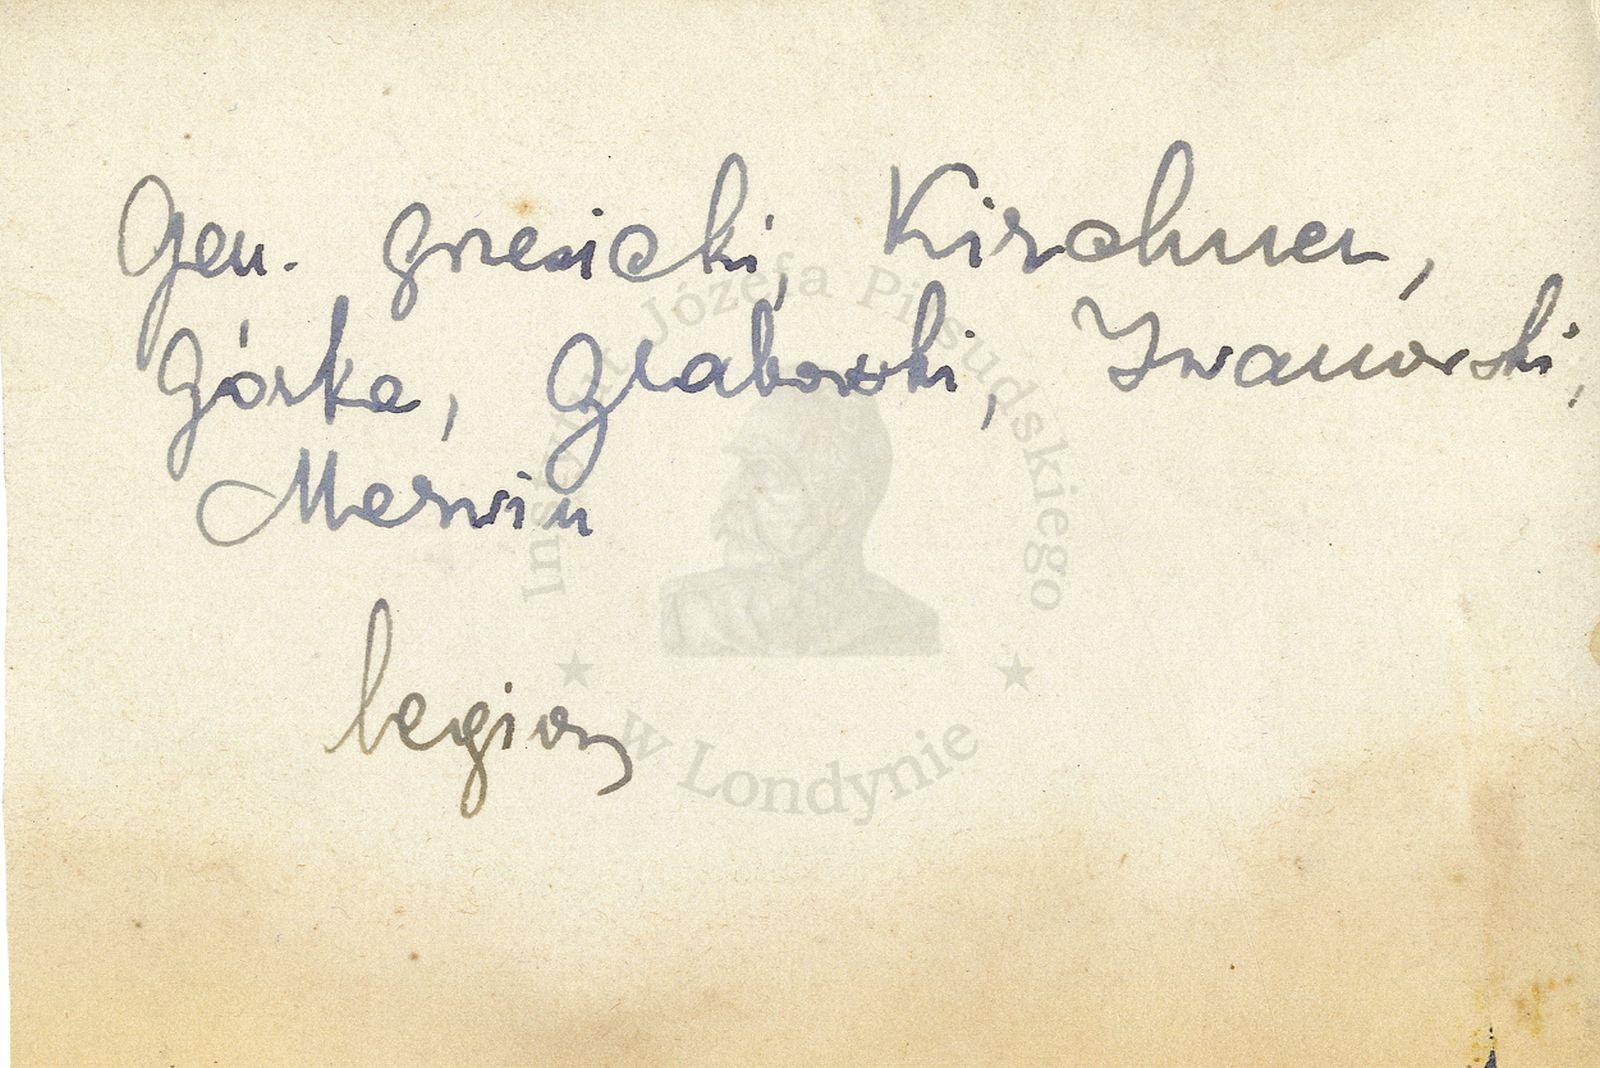 Gen. Grzesicki, Kirchner,
Górka, Grabowski, Iwanowski,
Merwin
legiony
Instytut Józefa Piłsudskiego
w Londynie